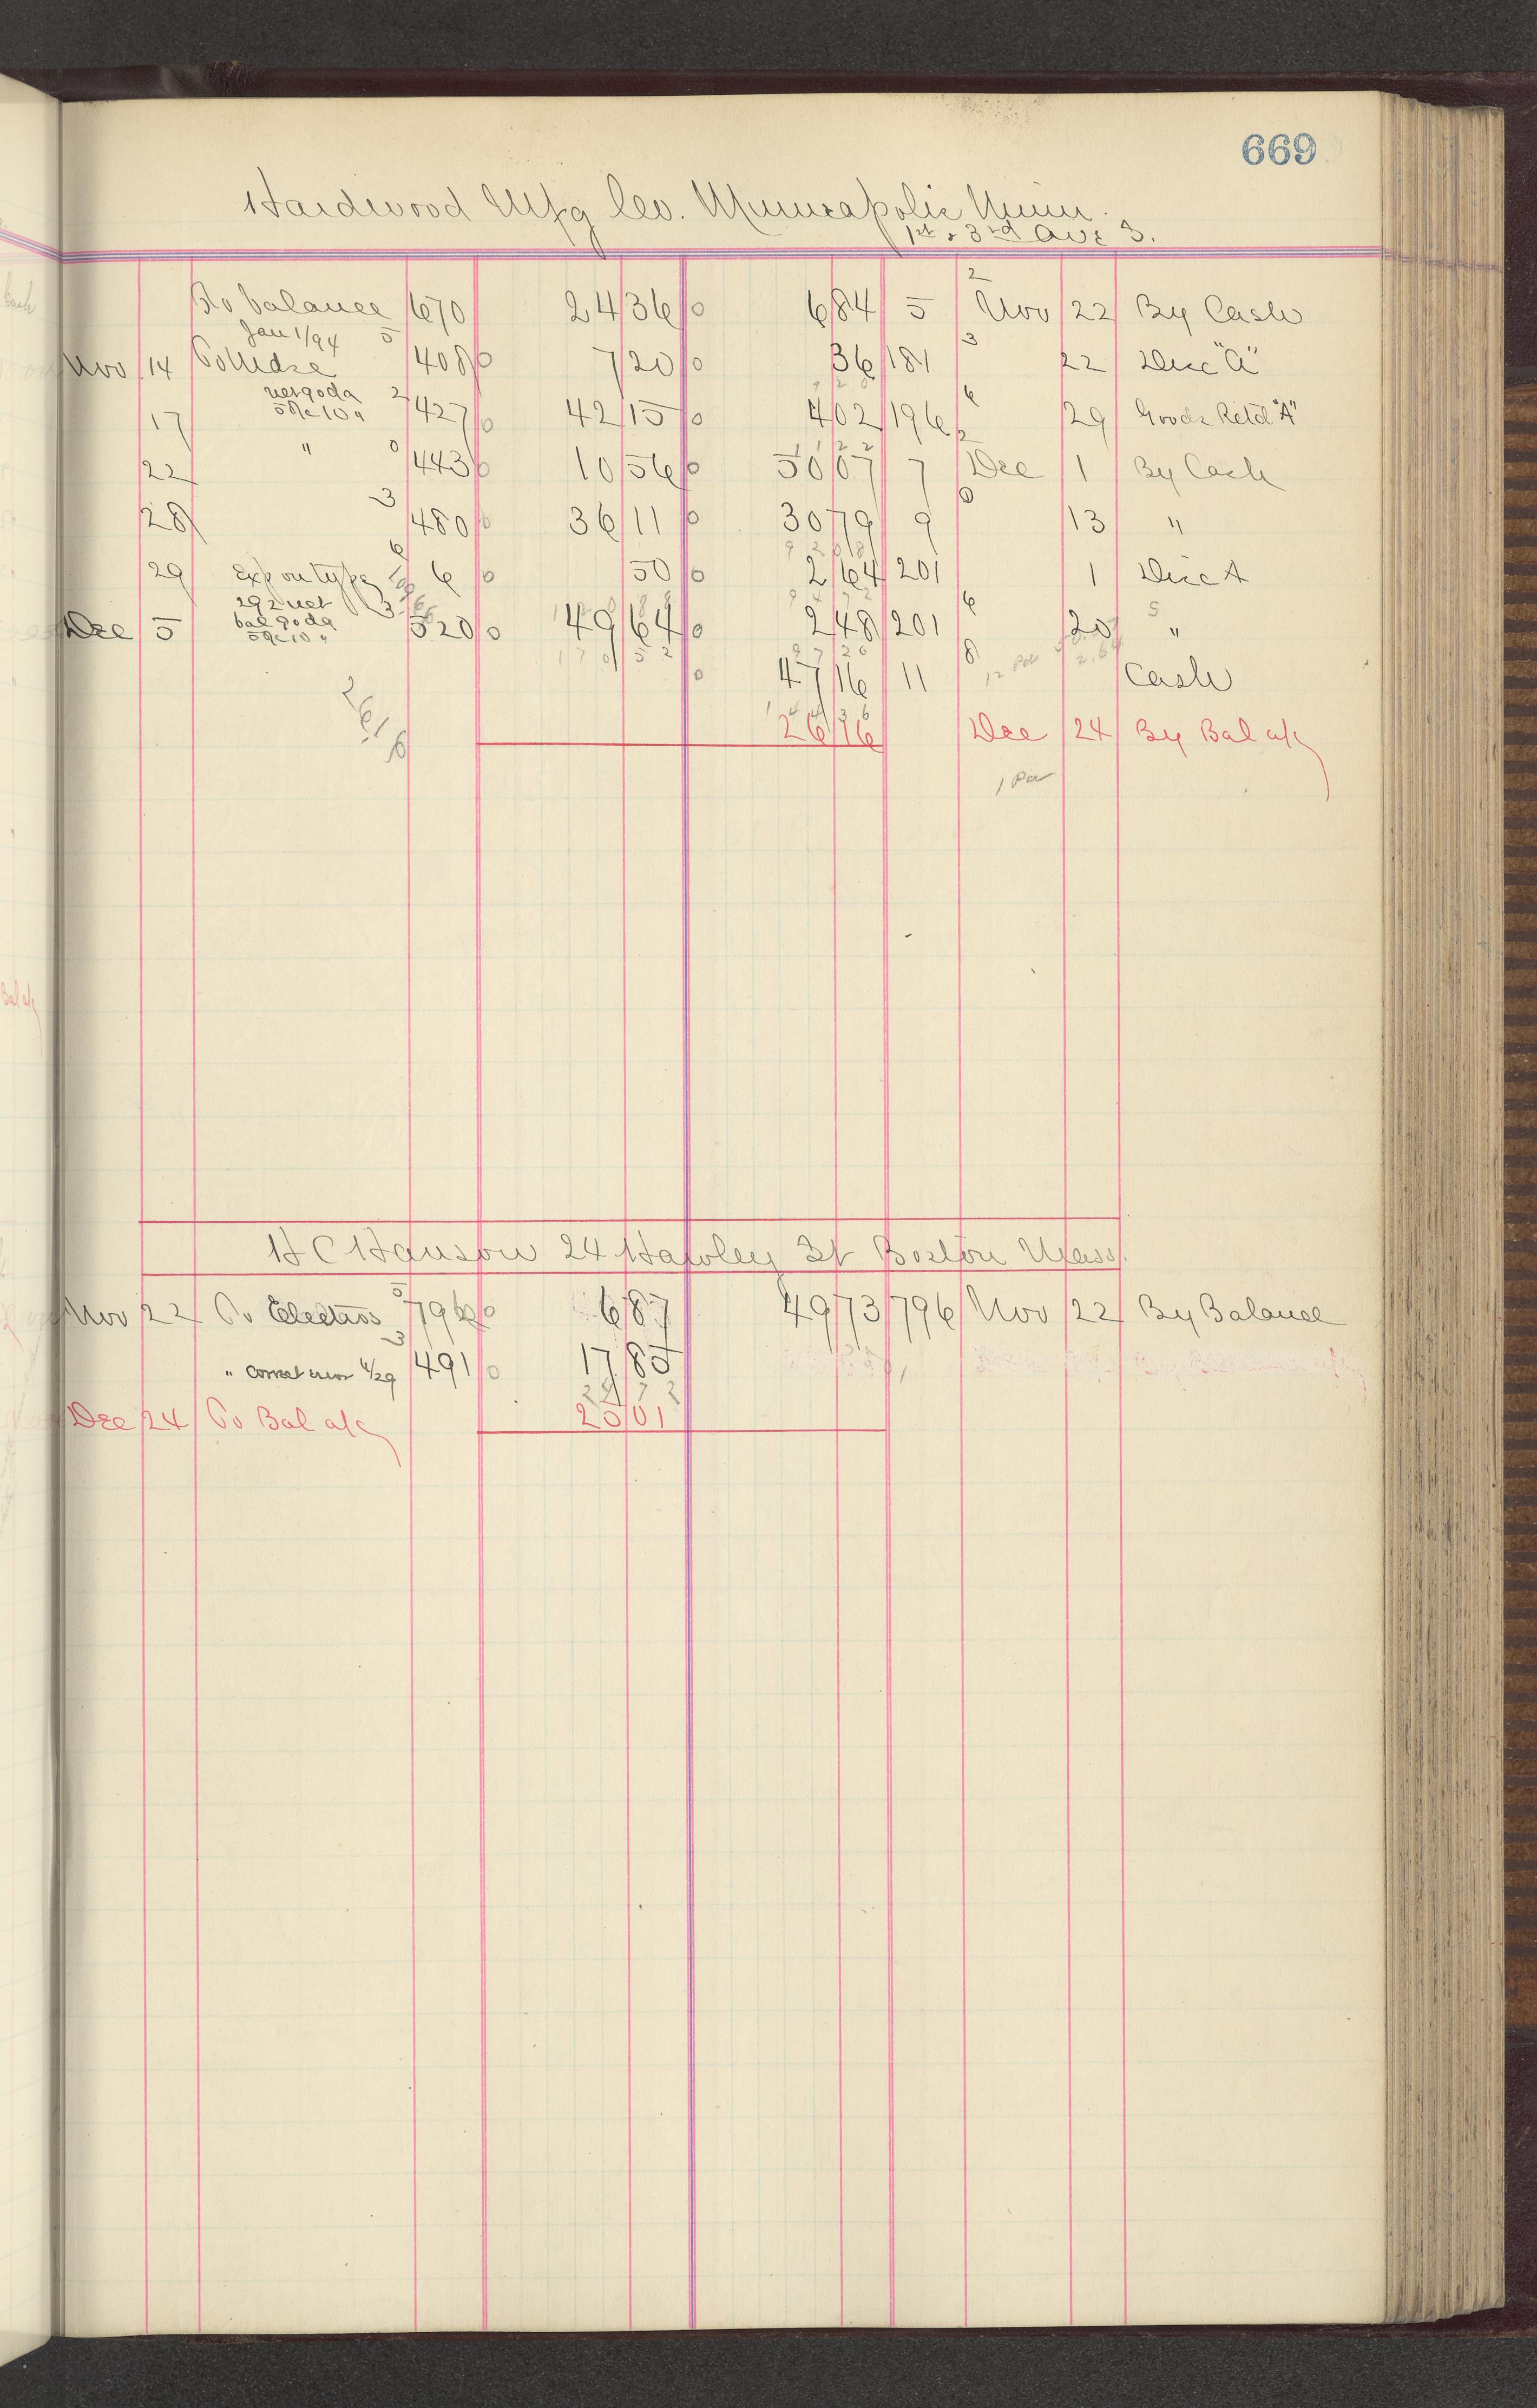 669
Hardwood Mfg Co. Minneapolis Minn.
1st & 3rd Ave S.
To balance 670 24 36 6 84 5 Nov 22 By Cash
Jan 1/94 5
Nov 14 To Mdse 408 7 20 36 181 22 Disc "A"
net goda 2
17 5% 10 " 427 42 15 4 02 196 29 Goods Retd "A"
22 " 443 10 56 50 07 7 Dec 1 By Cash
28 480 36 11 30 79 9 13 "
29 Exp on type 6 50 2 64 201 1 Disc A
292 net
Dec 5 bal goda 520 49 64 2 48 201 20 "
5% 10 "
47 16 11 Cash
26 16 Dec 24 By Bal a/c
H C Hanson 24 Hawley St Boston Mass.
Nov 22 To Electros 796 6 87 49 73 796 Nov 22 By Balance
" correct error 491 17 85
24 72
Dec 24 To Bal a/c 25 01